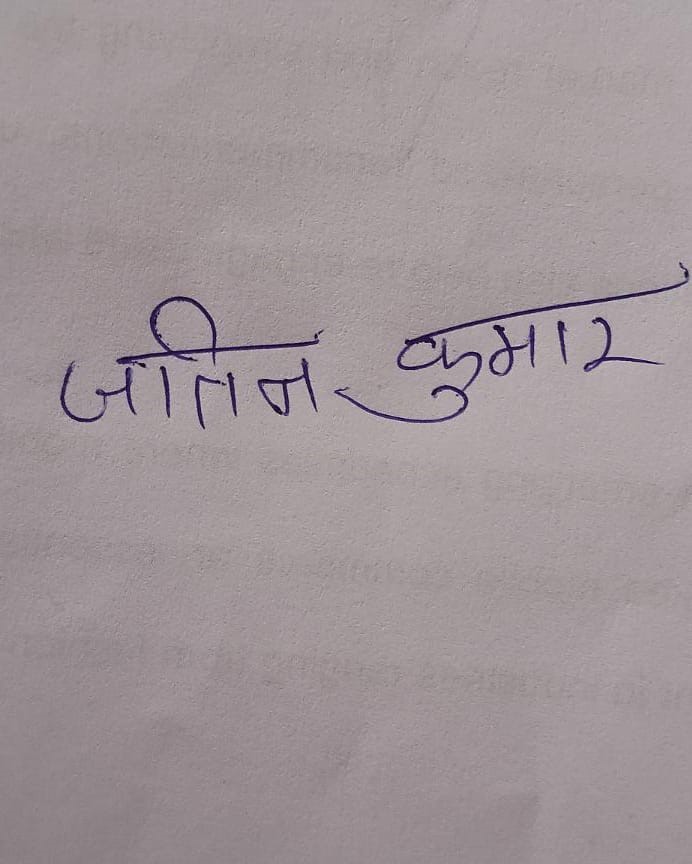 जतिन कुमार